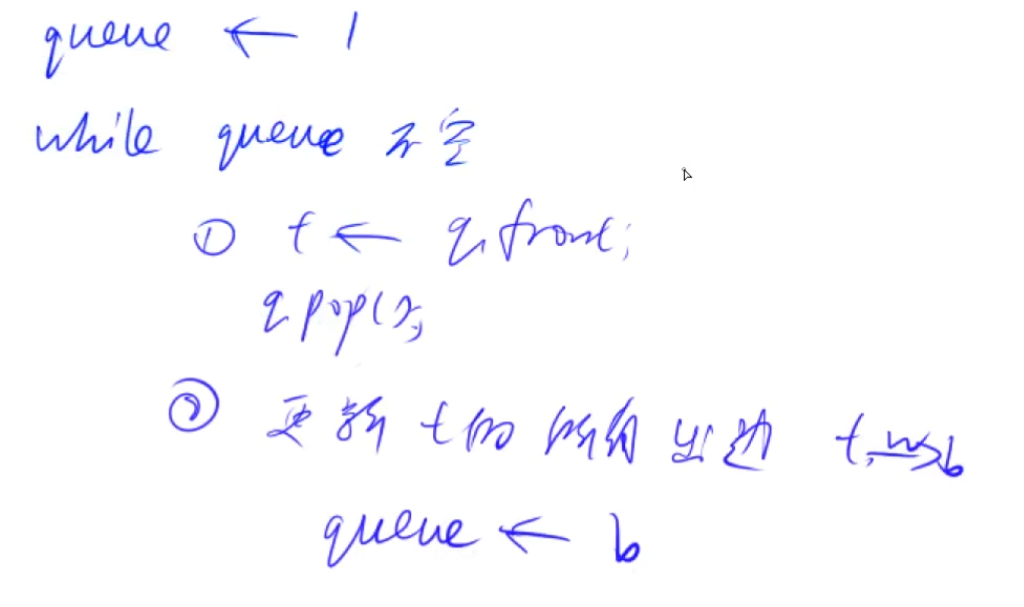 queue ← 1
while queue 不空
① t ← q.front;
q.pop();
② 更新t的所有出边 t -w-> b
queue ← b